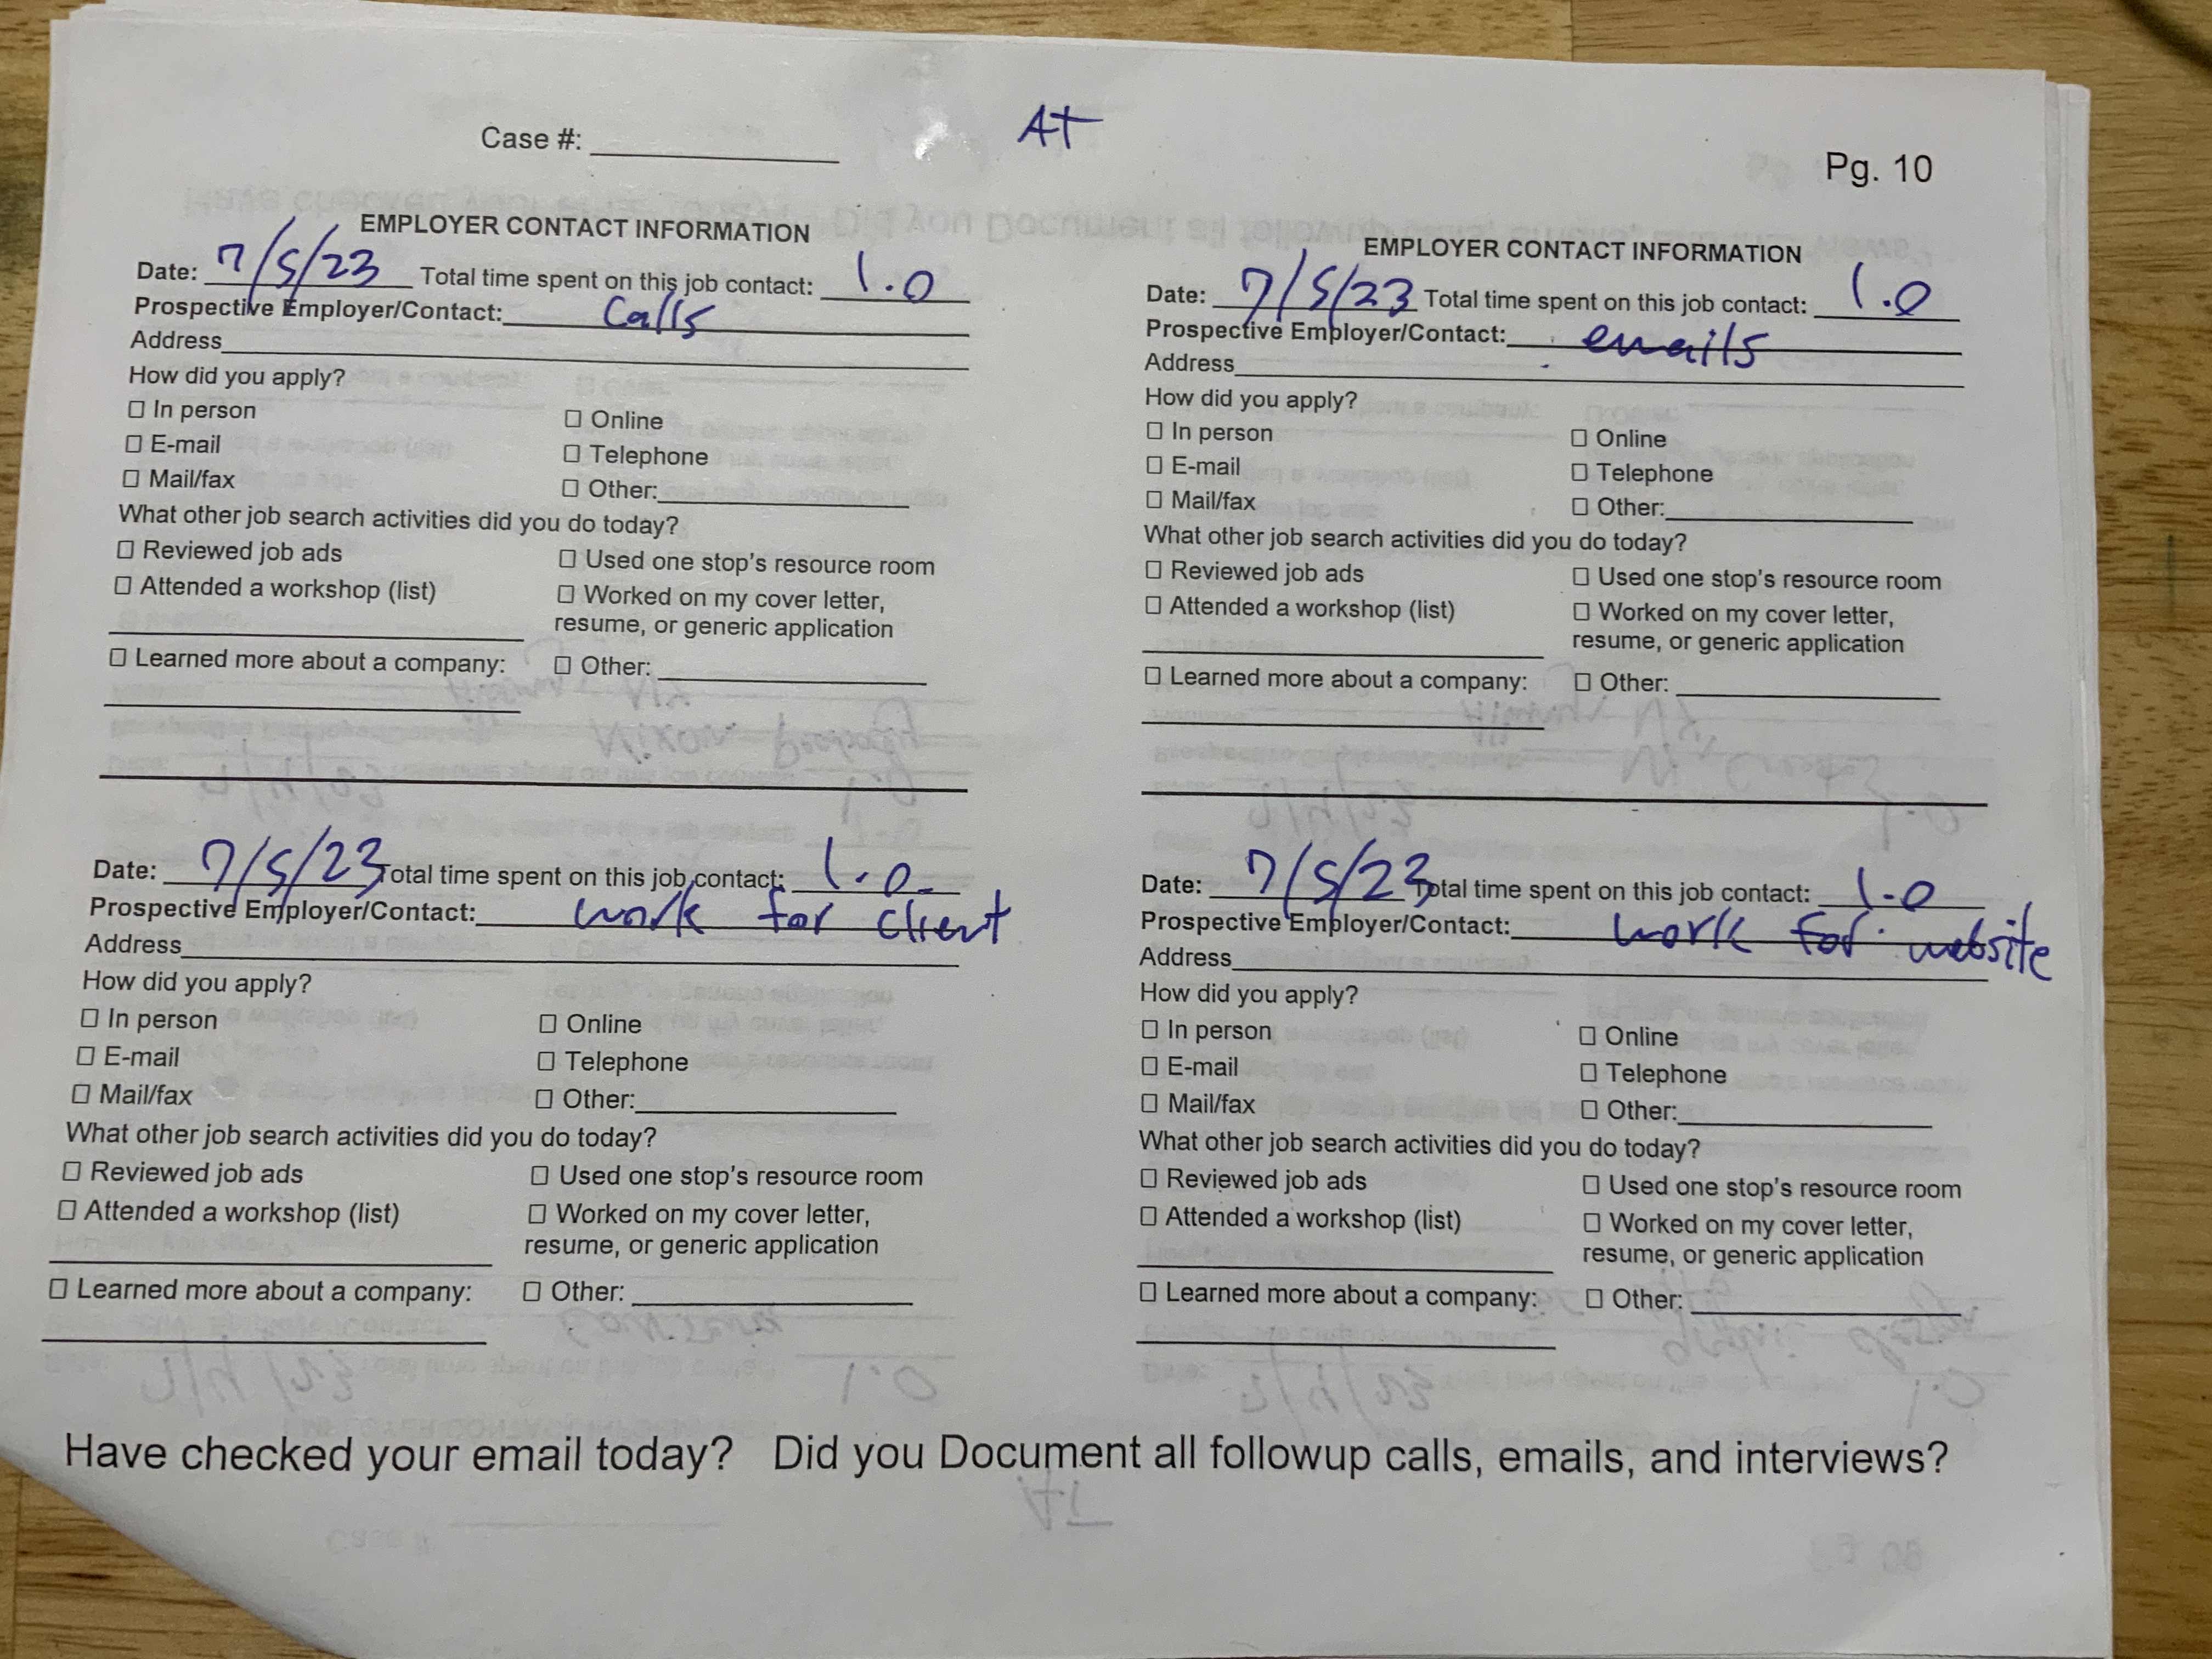 Case #: ____ At
Pg. 10
EMPLOYER CONTACT INFORMATION
Date: 7/5/23 Total time spent on this job contact: 1.0
Prospective Employer/Contact: Calls
Address
How did you apply?
☐ In person ☐ Online
☐ E-mail ☐ Telephone
☐ Mail/fax ☐ Other:
What other job search activities did you do today?
☐ Reviewed job ads ☐ Used one stop's resource room
☐ Attended a workshop (list) ☐ Worked on my cover letter,
resume, or generic application
☐ Learned more about a company: ☐ Other:
EMPLOYER CONTACT INFORMATION
Date: 7/5/23 Total time spent on this job contact: 1.0
Prospective Employer/Contact: emails
Address
How did you apply?
☐ In person ☐ Online
☐ E-mail ☐ Telephone
☐ Mail/fax ☐ Other:
What other job search activities did you do today?
☐ Reviewed job ads ☐ Used one stop's resource room
☐ Attended a workshop (list) ☐ Worked on my cover letter,
resume, or generic application
☐ Learned more about a company: ☐ Other:
Date: 7/5/23 Total time spent on this job contact: 1.0
Prospective Employer/Contact: work for client
Address
How did you apply?
☐ In person ☐ Online
☐ E-mail ☐ Telephone
☐ Mail/fax ☐ Other:
What other job search activities did you do today?
☐ Reviewed job ads ☐ Used one stop's resource room
☐ Attended a workshop (list) ☐ Worked on my cover letter,
resume, or generic application
☐ Learned more about a company: ☐ Other:
Date: 7/5/23 Total time spent on this job contact: 1.0
Prospective Employer/Contact: work for website
Address
How did you apply?
☐ In person ☐ Online
☐ E-mail ☐ Telephone
☐ Mail/fax ☐ Other:
What other job search activities did you do today?
☐ Reviewed job ads ☐ Used one stop's resource room
☐ Attended a workshop (list) ☐ Worked on my cover letter,
resume, or generic application
☐ Learned more about a company: ☐ Other:
Have checked your email today? Did you Document all followup calls, emails, and interviews?